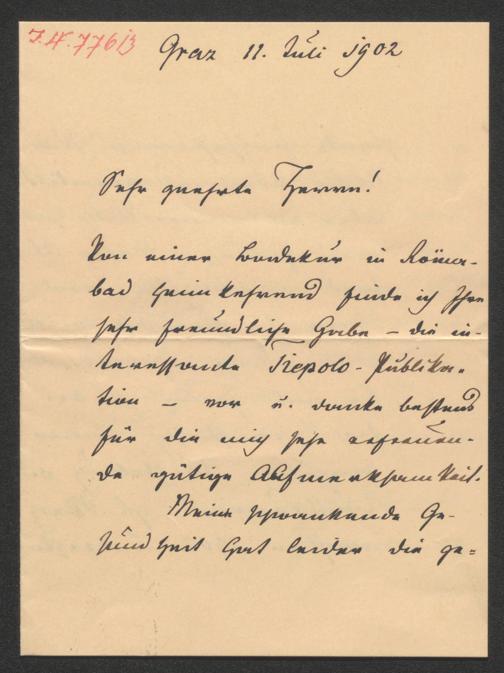 J.N. 77613
Graz 11. Juli 1902
Sehr geehrte Herren!
Von einer Badekur in Römer-
bad heimkehrend finde ich Ihre
sehr freundliche Gabe – die in-
teressante Tiepolo-Publika-
tion – vor u. danke bestens
für die mich sehr erfreuen-
de gütige Aufmerksamkeit.
Meine schwankende Ge-
sundheit hat leider die ge-